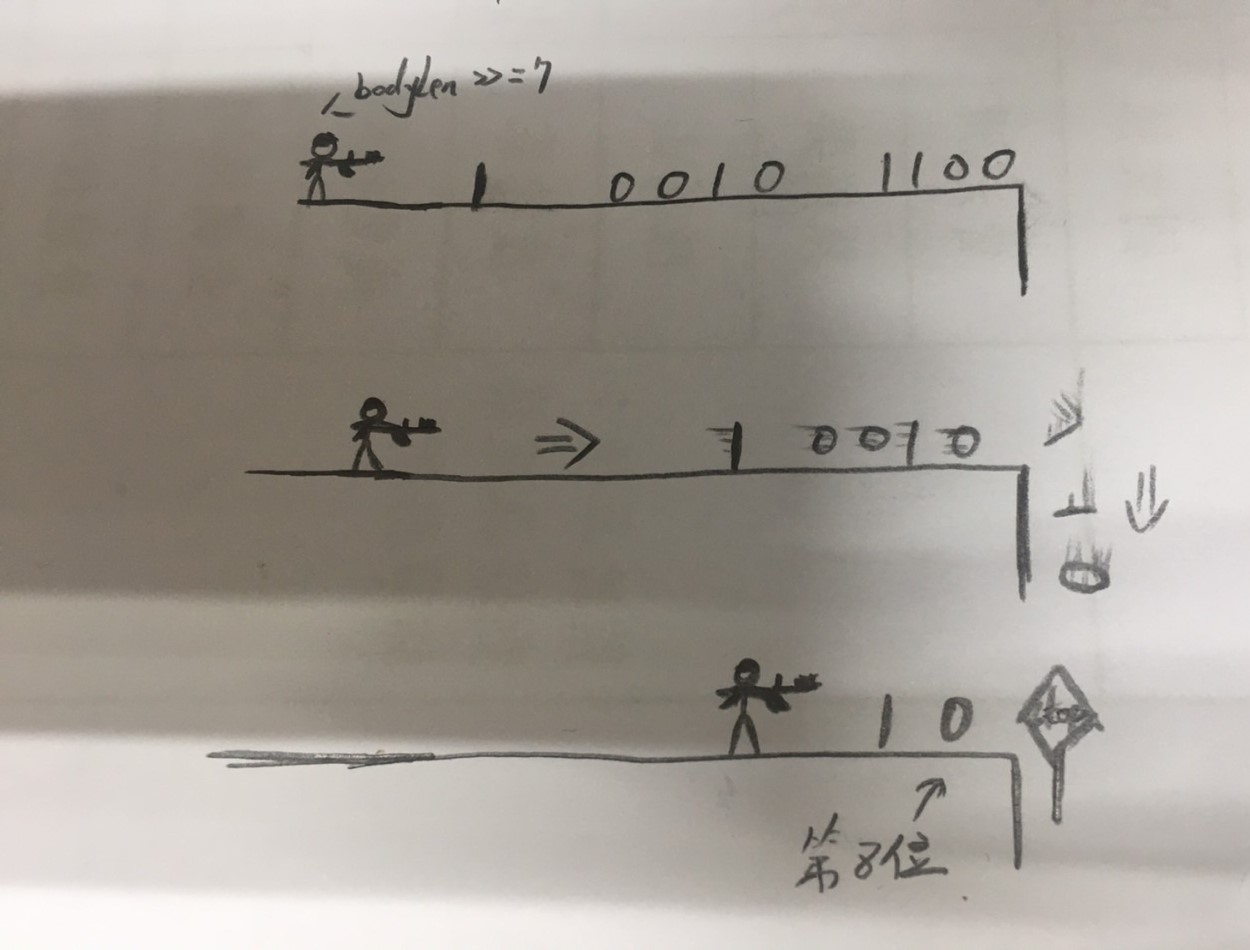 bodyLen >>= 7
1 0010 1100
⇒ 1 0010
1 0
1 0
stop
第8位